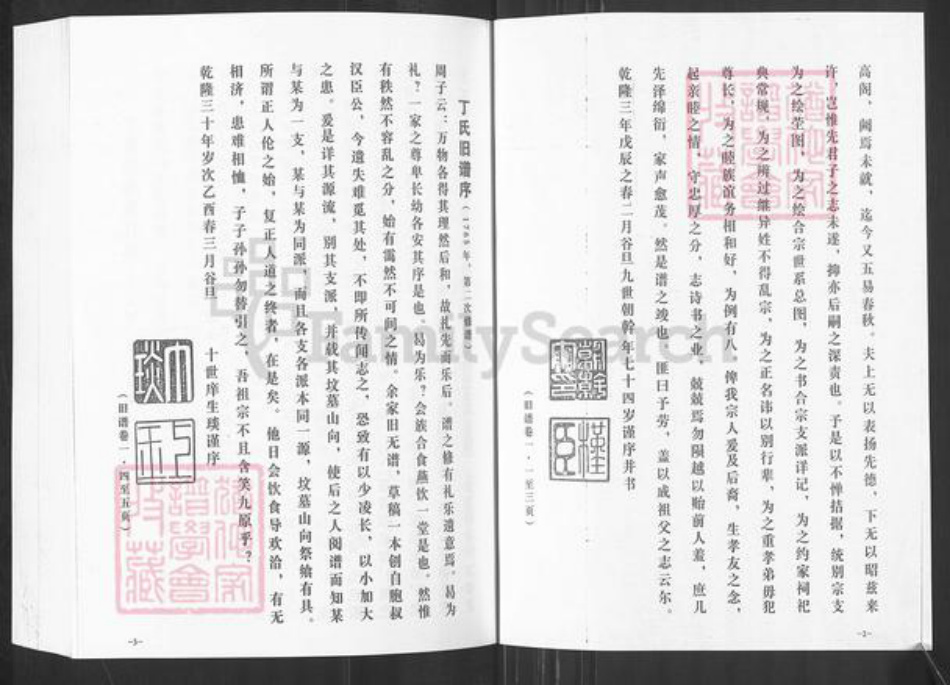 高阅，阙焉未就，迄今又五易春秋。夫上无以表扬先德，下无以昭兹来
许，岂惟先君子之志未遂，抑亦后嗣之深责也。予是以不惮拮据，统别宗支
为之绘茔图，为之绘合宗世系总图，为之书合宗支派详记，为之约家祠祀
典常规，为之辨过继异姓不得乱宗，为之正名讳以别行辈，为之重孝弟毋犯
尊长，为之睦族谊务相和好，为例有八，俾我宗人爱及后裔，生孝友之念，
起亲睦之情，守忠厚之分，志诗书之业，兢兢焉勿陨越以贻前人羞，庶几
先泽绵衍，家声愈茂。然是谱之竣也，匪曰予劳，盖以成祖父之志云尔。
乾隆三年戊辰之春二月谷旦九世朝幹年七十四岁谨序并书
（旧谱卷一·一至三页）
-2-
丁氏旧谱序（1765年，第二次修谱）
周子云：万物各得其理然后和，故礼先而乐后。谱之修有礼乐遗意焉。曷为
礼？一家之尊卑长幼各安其序是也。曷为乐？会族合食燕饮一堂是也。然惟
有秩然不容乱之分，始有霭然不可间之情。余家旧无谱，草稿一本创自胞叔
汉臣公，今遗失难觅其处，不即所传闻志之，恐致有以少凌长，以小加大
之患。爰是详其源流，别其支派，并载其坟墓山向，使后之人阅谱而知某
与某为一支，某与某为同派，而且各支各派本同一源，坟墓山向祭飨有具。
所谓正人伦之始，复正人道之终者，在是矣。他日会饮食导欢洽，有无
相济，患难相恤，子子孙孙勿替引之，吾祖宗不且含笑九原乎？
乾隆三十年岁次乙酉春三月谷旦
十世庠生琰谨序
（旧谱卷一·四至五页）
-3-
FamilySearch